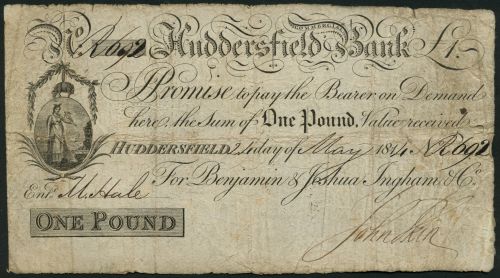 No. R692 Huddersfield Bank £1.
COMMERCIAL
I Promise to pay the Bearer on Demand
here the Sum of One Pound. Value received
HUDDERSFIELD 24 day of May 1814 No. R692
For Benjamin & Joshua Ingham & Co.
Entd. M. Hale
ONE POUND
John